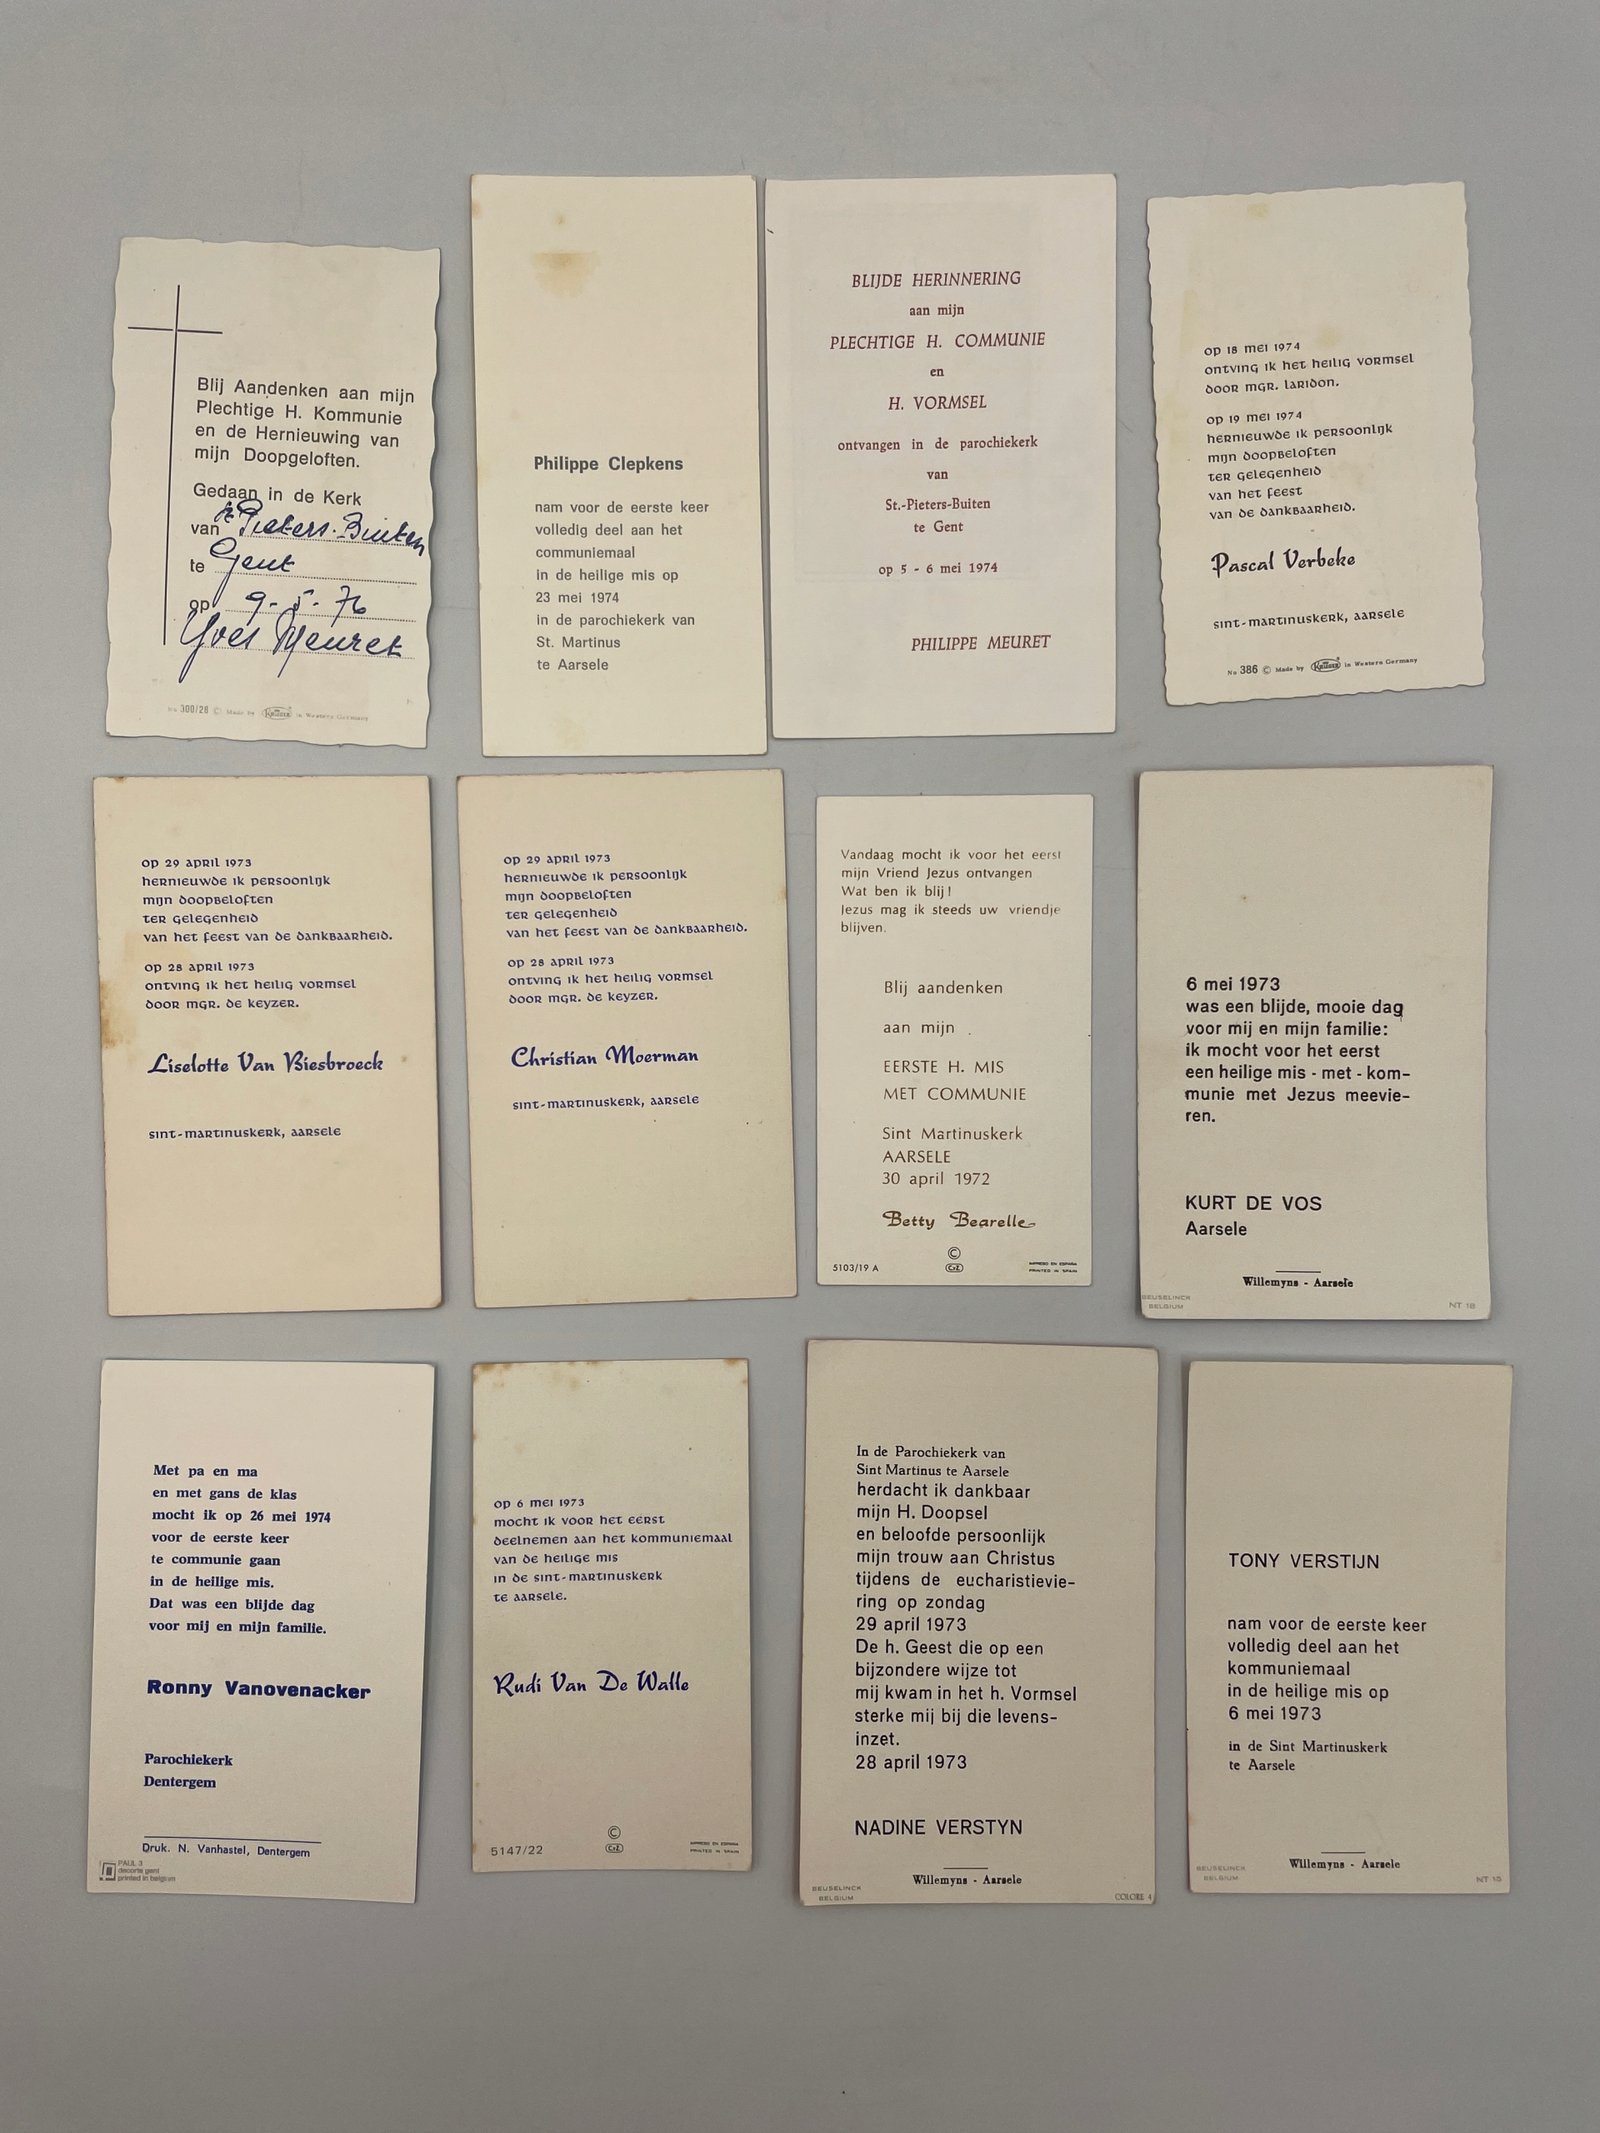 Blij Aandenken aan mijn
Plechtige H. Kommunie
en de Hernieuwing van
mijn Doopgeloften.
Gedaan in de Kerk
van St Pieters-Buiten
te Gent
op 9-5-76
Yves Meuret
No 300/28 © Made by KRÜGER in Western Germany
Philippe Clepkens
nam voor de eerste keer
volledig deel aan het
communiemaal
in de heilige mis op
23 mei 1974
in de parochiekerk van
St. Martinus
te Aarsele
BLIJDE HERINNERING
aan mijn
PLECHTIGE H. COMMUNIE
en
H. VORMSEL
ontvangen in de parochiekerk
van
St.-Pieters-Buiten
te Gent
op 5 - 6 mei 1974
PHILIPPE MEURET
op 18 mei 1974
ontving ik het heilig vormsel
door mgr. laridon.
op 19 mei 1974
hernieuwde ik persoonlijk
mijn doopbeloften
ter gelegenheid
van het feest
van de dankbaarheid.
Pascal Verbeke
sint-martinuskerk, aarsele
No 386 © Made by KRÜGER in Western Germany
op 29 april 1973
hernieuwde ik persoonlijk
mijn doopbeloften
ter gelegenheid
van het feest van de dankbaarheid.
op 28 april 1973
ontving ik het heilig vormsel
door mgr. de keyzer.
Liselotte Van Biesbroeck
sint-martinuskerk, aarsele
op 29 april 1973
hernieuwde ik persoonlijk
mijn doopbeloften
ter gelegenheid
van het feest van de dankbaarheid.
op 28 april 1973
ontving ik het heilig vormsel
door mgr. de keyzer.
Christian Moerman
sint-martinuskerk, aarsele
Vandaag mocht ik voor het eerst
mijn Vriend Jezus ontvangen
Wat ben ik blij!
Jezus mag ik steeds uw vriendje
blijven.
Blij aandenken
aan mijn
EERSTE H. MIS
MET COMMUNIE
Sint Martinuskerk
AARSELE
30 april 1972
Betty Bearelle
©
5103/19 A CoZ IMPRESO EN ESPAÑA
PRINTED IN SPAIN
6 mei 1973
was een blijde, mooie dag
voor mij en mijn familie:
ik mocht voor het eerst
een heilige mis - met - kom-
munie met Jezus meevie-
ren.
KURT DE VOS
Aarsele
Willemyns - Aarsele
BEUSELINCK
BELGIUM NT 18
Met pa en ma
en met gans de klas
mocht ik op 26 mei 1974
voor de eerste keer
te communie gaan
in de heilige mis.
Dat was een blijde dag
voor mij en mijn familie.
Ronny Vanovenacker
Parochiekerk
Dentergem
Druk. N. Vanhastel, Dentergem
PAUL 3
decorte gent
printed in belgium
op 6 mei 1973
mocht ik voor het eerst
deelnemen aan het kommuniemaal
van de heilige mis
in de sint-martinuskerk
te aarsele.
Rudi Van De Walle
©
5147/22 CoZ IMPRESO EN ESPAÑA
PRINTED IN SPAIN
In de Parochiekerk van
Sint Martinus te Aarsele
herdacht ik dankbaar
mijn H. Doopsel
en beloofde persoonlijk
mijn trouw aan Christus
tijdens de eucharistievie-
ring op zondag
29 april 1973
De h. Geest die op een
bijzondere wijze tot
mij kwam in het h. Vormsel
sterke mij bij die levens-
inzet.
28 april 1973
NADINE VERSTYN
Willemyns - Aarsele
BEUSELINCK
BELGIUM COLORE 4
TONY VERSTIJN
nam voor de eerste keer
volledig deel aan het
kommuniemaal
in de heilige mis op
6 mei 1973
in de Sint Martinuskerk
te Aarsele
Willemyns - Aarsele
BEUSELINCK
BELGIUM